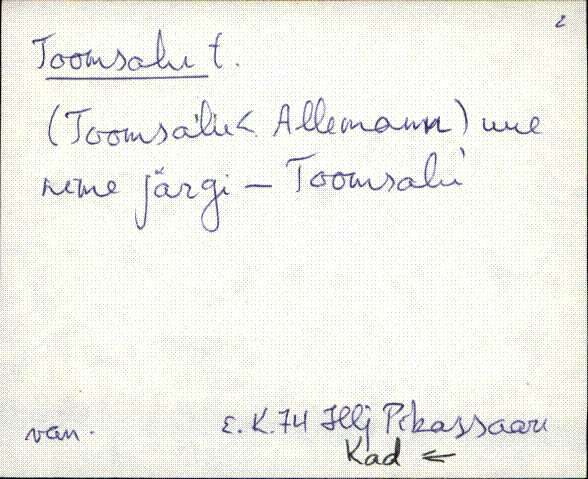 2
Toomsalu t.
(Toomsalu < Allemann) uue
nime järgi – Toomsalu
van. E. K. 74 Illj Pikassaare
Kad ←